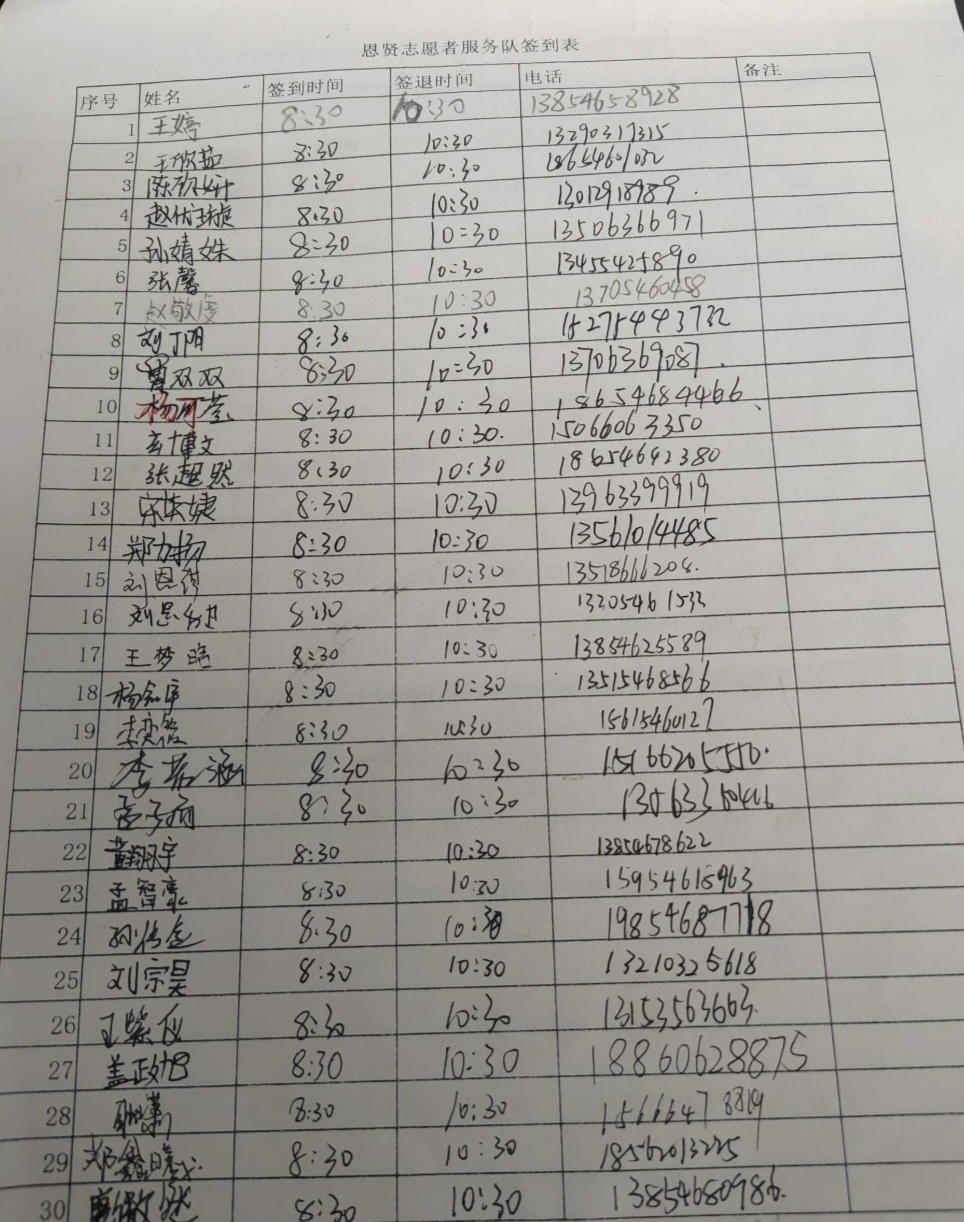 恩贤志愿者服务队签到表
序号 姓名 签到时间 签退时间 电话 备注
1 王婷 8:30 10:30 13854658928
2 王欣茹 8:30 10:30 13290317315
3 8:30 10:30 18654601032
4 8:30 10:30 13012918989.
5 孙婧姝 8:30 10:30 13506366971
6 张馨 8:30 10:30 13455425890
7 赵敬度 8:30 10:30 13705460458
8 刘丁阳 8:30 10:30 15275443732
9 曹双双 8:30 10:30 13706369087.
10 杨可莹 8:30 10:30 18654684466.
11 玄博文 8:30 10:30. 15066063350
12 张超然 8:30 10:30 18654642380
13 宋婕 8:30 10:30 13963399919
14 郑力扬 8:30 10:30 13561014485
15 刘恩 8:30 10:30 13518666208.
16 刘恩 8:30 10:30 13205461532
17 王梦晗 8:30 10:30 13854625589
18 杨 8:30 10:30 13515468566
19 李奕 8:30 10:30 15615460127
20 李若涵 8:30 10:30 15166205550.
21 孟子 8:30 10:30
22 黄翔宇 8:30 10:30 13854678622
23 孟智豪 8:30 10:30 15954615963
24 孙 8:30 10:30 19854687718
25 刘宗昊 8:30 10:30 13210325618
26 王紫仪 8:30 10:30 13153563663.
27 盖政旭 8:30 10:30 18860628875
28 8:30 10:30 15666478819
29 郑鑫 8:30 10:30 18562013225
30 8:30 10:30 13854680986.